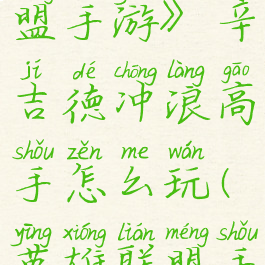 盟手游》辛
jí dé chōng làng gāo
吉德冲浪高
shǒu zěn me wán
手怎么玩(
yīng xióng lián méng shǒu
英雄联盟手